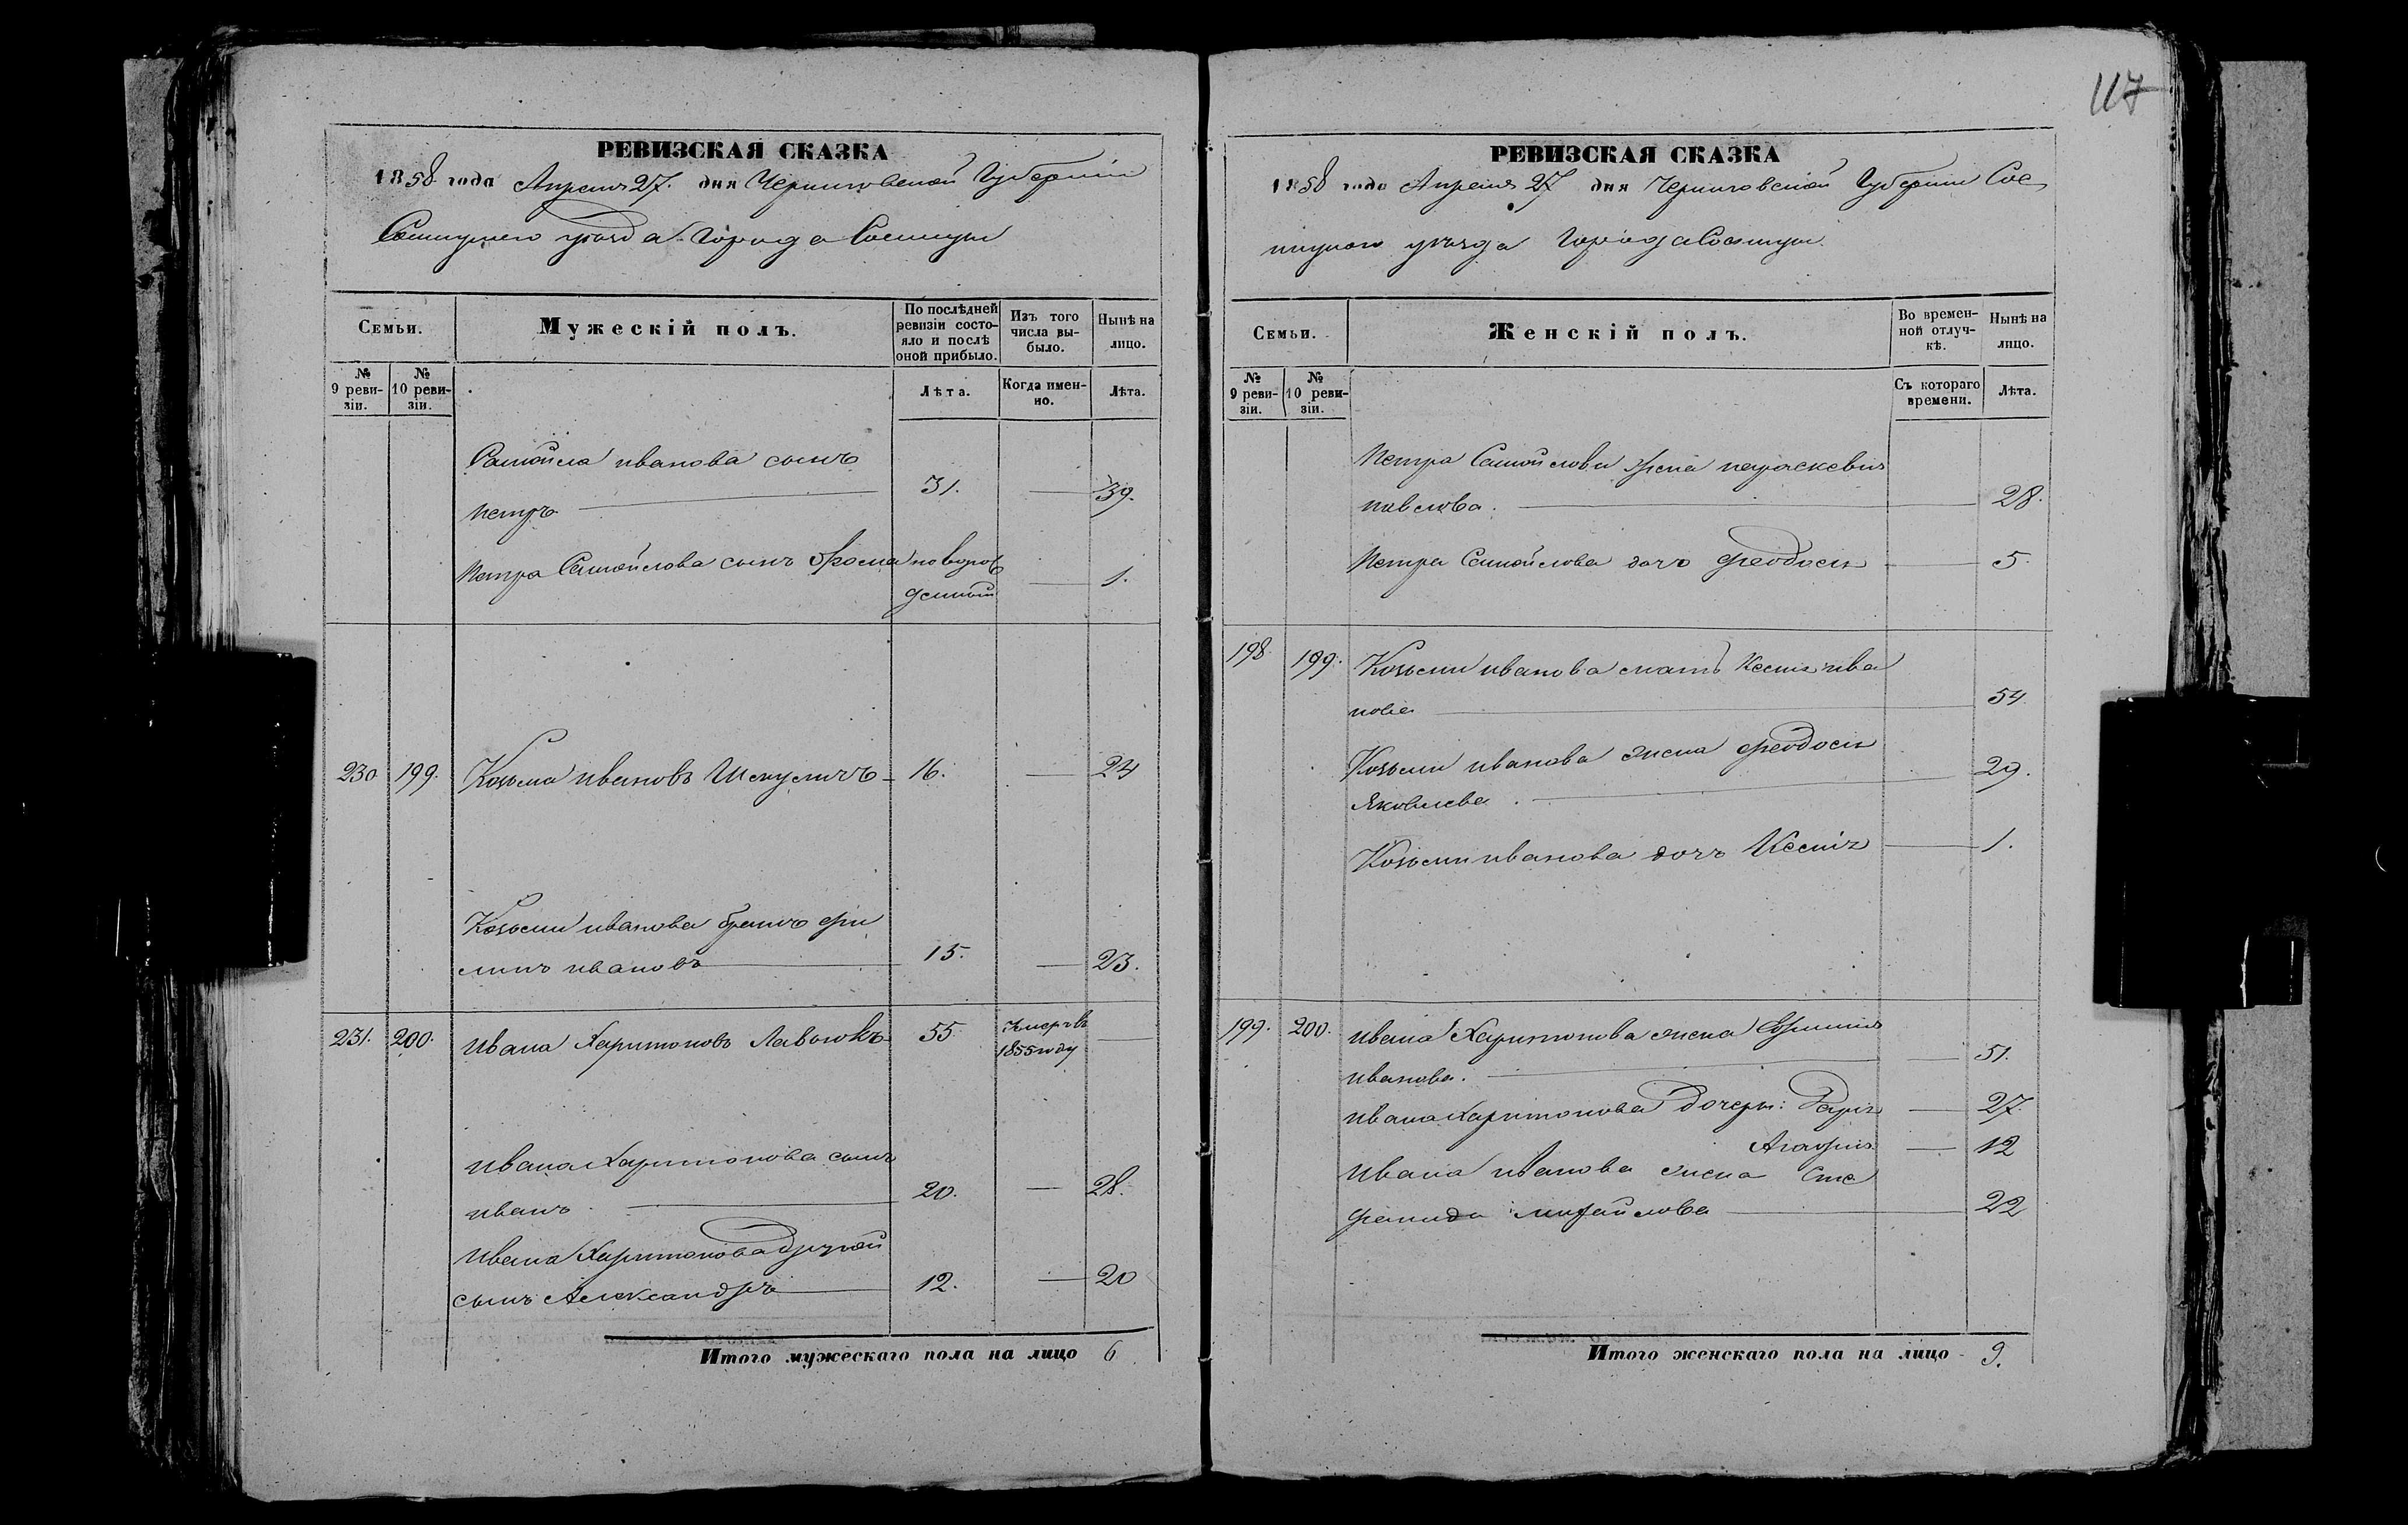 117
РЕВИЗСКАЯ СКАЗКА
1858 года Апреля 27. дня Черниговской Губернии
Сосницкого уезда города Сосницы
Семьи.
Мужескій полъ.
По послѣдней ревизіи состояло и послѣ оной прибыло.
Изъ того числа выбыло.
Нынѣ на лицо.
№ 9 ревизіи.
№ 10 ревизіи.
Лѣта.
Когда именно.
Лѣта.
Самойла иванова сынъ
петръ 31. 39.
Петра Самойлова сынъ Фома новорож
денный 1.
230 199. Козьма ивановъ 16. 24
Козьми иванова братъ фи
липъ ивановъ 15. 23.
231. 200. Ивана Харитоновъ Лавокъ 55 умеръ въ
1855 году
Ивана Харитонова сынъ
иванъ 20. 28.
Ивана Харитонова другой
сынъ Александръ 12. 20
Итого мужескаго пола на лицо 6
РЕВИЗСКАЯ СКАЗКА
1858 года Апреля 27 дня Черниговской Губернии Сос
ницкого уезда города Сосницы
Семьи.
Женскій полъ.
Во временной отлучкѣ.
Нынѣ на лицо.
№ 9 ревизіи.
№ 10 ревизіи.
Съ котораго времени.
Лѣта.
Петра Самойлова жена параскевия
павлова. 28.
Петра Самойлова дочь феодосия 5.
198. 199. Козьми иванова мать Ксения ива
нова 54
Козьми иванова жена феодосия
Яковлева. 29.
Козьми иванова дочь Ксения 1.
199. 200. Ивана Харитонова жена
иванова. 51.
Ивана Харитонова дочери: Дарья 27.
Агафия 12
Ивана Иванова жена Сте
фанида михайлова 22
Итого женскаго пола на лицо 9.